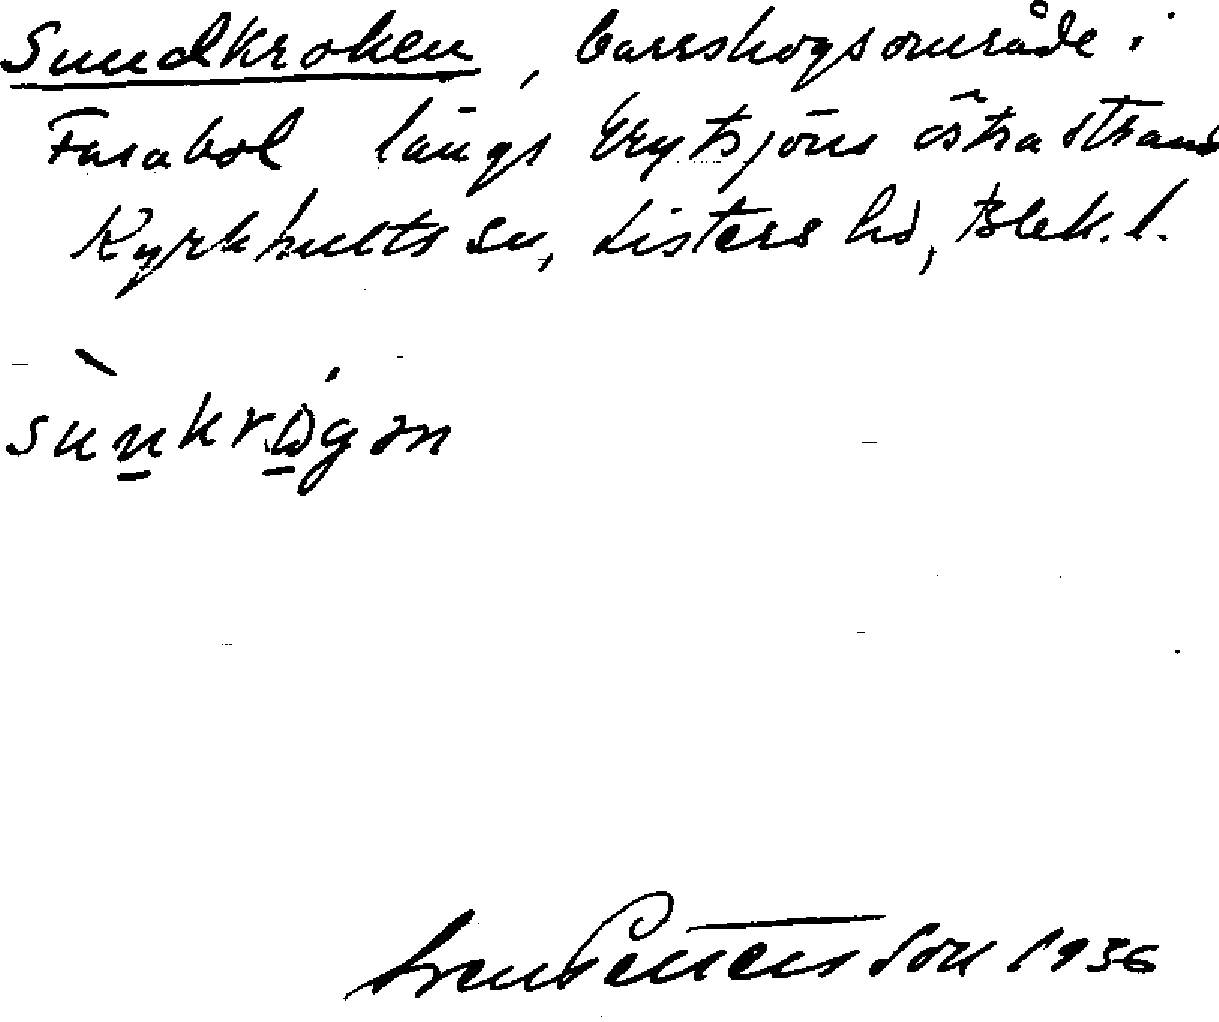 Sundkroken, barrskogsområde i
Farabol längs Grytsjöns östra strand
Kyrkhults sn, Listers hd, Blek. l.
sùnkrågən
Sven Pettersson 1936